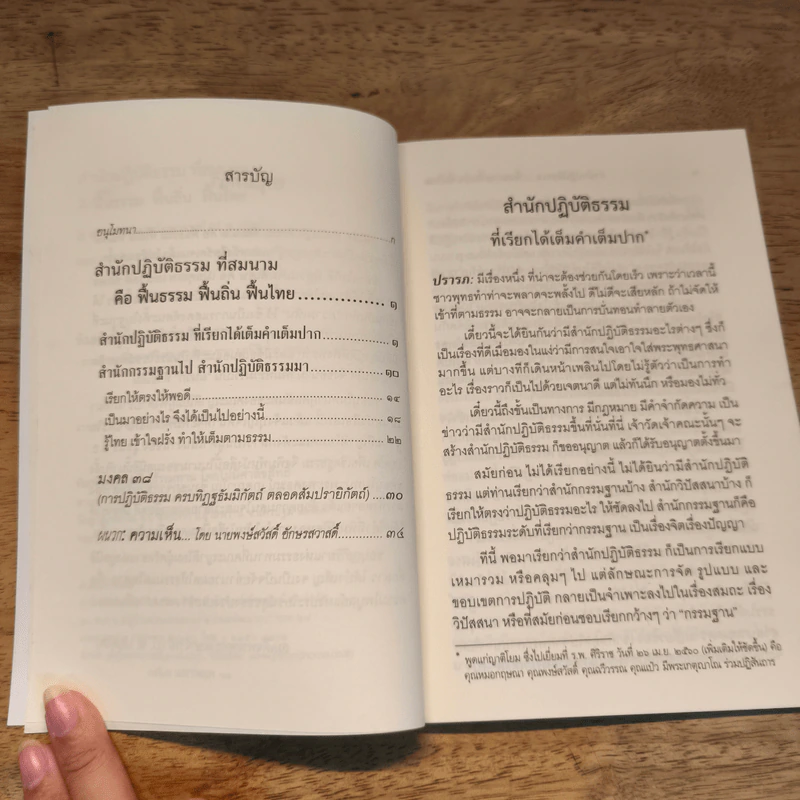 สารบัญ
อนุโมทนา ก
สำนักปฏิบัติธรรม ที่สมนาม
คือ ฟื้นธรรม ฟื้นถิ่น ฟื้นไทย ๑
สำนักปฏิบัติธรรม ที่เรียกได้เต็มคำเต็มปาก ๑
สำนักกรรมฐานไป สำนักปฏิบัติธรรมมา ๑๐
เรียกให้ตรงให้พอดี ๑๔
เป็นมาอย่างไร จึงได้เป็นไปอย่างนี้ ๑๘
รู้ไทย เข้าใจฝรั่ง ทำให้เต็มตามธรรม ๒๒
มงคล ๓๘
(การปฏิบัติธรรม ครบทิฏฐธัมมิกัตถ์ ตลอดสัมปรายิกัตถ์) ๓๐
ผนวก: ความเห็น... โดย นายพงษ์สวัสดิ์ อักษรสวาสดิ์ ๓๔
สำนักปฏิบัติธรรม
ที่เรียกได้เต็มคำเต็มปาก*
ปรารภ: มีเรื่องหนึ่ง ที่น่าจะต้องช่วยกันโดยเร็ว เพราะว่าเวลานี้
ชาวพุทธทำท่าจะพลาดจะพลั้งไป ดีไม่ดีจะเสียหลัก ถ้าไม่จัดให้
เข้าที่ตามธรรม อาจจะกลายเป็นการบั่นทอนทำลายตัวเอง
เดี๋ยวนี้จะได้ยินกันว่ามีสำนักปฏิบัติธรรมอะไรต่างๆ ซึ่งก็
เป็นเรื่องที่ดีเมื่อมองในแง่ว่ามีการสนใจเอาใจใส่พระพุทธศาสนา
มากขึ้น แต่บางทีก็เดินหน้าเพลินไปโดยไม่รู้ตัวว่าเป็นการทำ
อะไร เรื่องราวก็เป็นไปด้วยเจตนาดี แต่ไม่ทันนึก หรือมองไม่ทั่ว
เดี๋ยวนี้ถึงขั้นเป็นทางการ มีกฎหมาย มีคำจำกัดความ เป็น
ข่าวว่ามีสำนักปฏิบัติธรรมขึ้นที่นั่นที่นี่ เจ้าวัดเจ้าคณะนั้นๆ จะ
สร้างสำนักปฏิบัติธรรม ก็ขออนุญาต แล้วก็ได้รับอนุญาตตั้งขึ้นมา
สมัยก่อน ไม่ได้เรียกอย่างนี้ ไม่ได้ยินว่ามีสำนักปฏิบัติ
ธรรม แต่ท่านเรียกว่าสำนักกรรมฐานบ้าง สำนักวิปัสสนาบ้าง ก็
เรียกให้ตรงว่าปฏิบัติธรรมอะไร ให้ชัดลงไป สำนักกรรมฐานก็คือ
ปฏิบัติธรรมระดับที่เรียกว่ากรรมฐาน เป็นเรื่องจิตเรื่องปัญญา
ทีนี้ พอมาเรียกว่าสำนักปฏิบัติธรรม ก็เป็นการเรียกแบบ
เหมารวม หรือคลุมๆ ไป แต่ลักษณะการจัด รูปแบบ และ
ขอบเขตการปฏิบัติ กลายเป็นจำเพาะลงไปในเรื่องสมถะ เรื่อง
วิปัสสนา หรือที่สมัยก่อนชอบเรียกกว้างๆ ว่า “กรรมฐาน”
* พูดแก่ญาติโยม ซึ่งไปเยี่ยมที่ ร.พ. ศิริราช วันที่ ๒๖ เม.ย. ๒๕๖๐ (เพิ่มเติมให้ชัดขึ้น) คือ
คุณหมอกฤษณา คุณพงษ์สวัสดิ์ คุณฉวีวรรณ คุณแป๋ว มีพระเกตุญาโณ ร่วมปฏิสันถาร